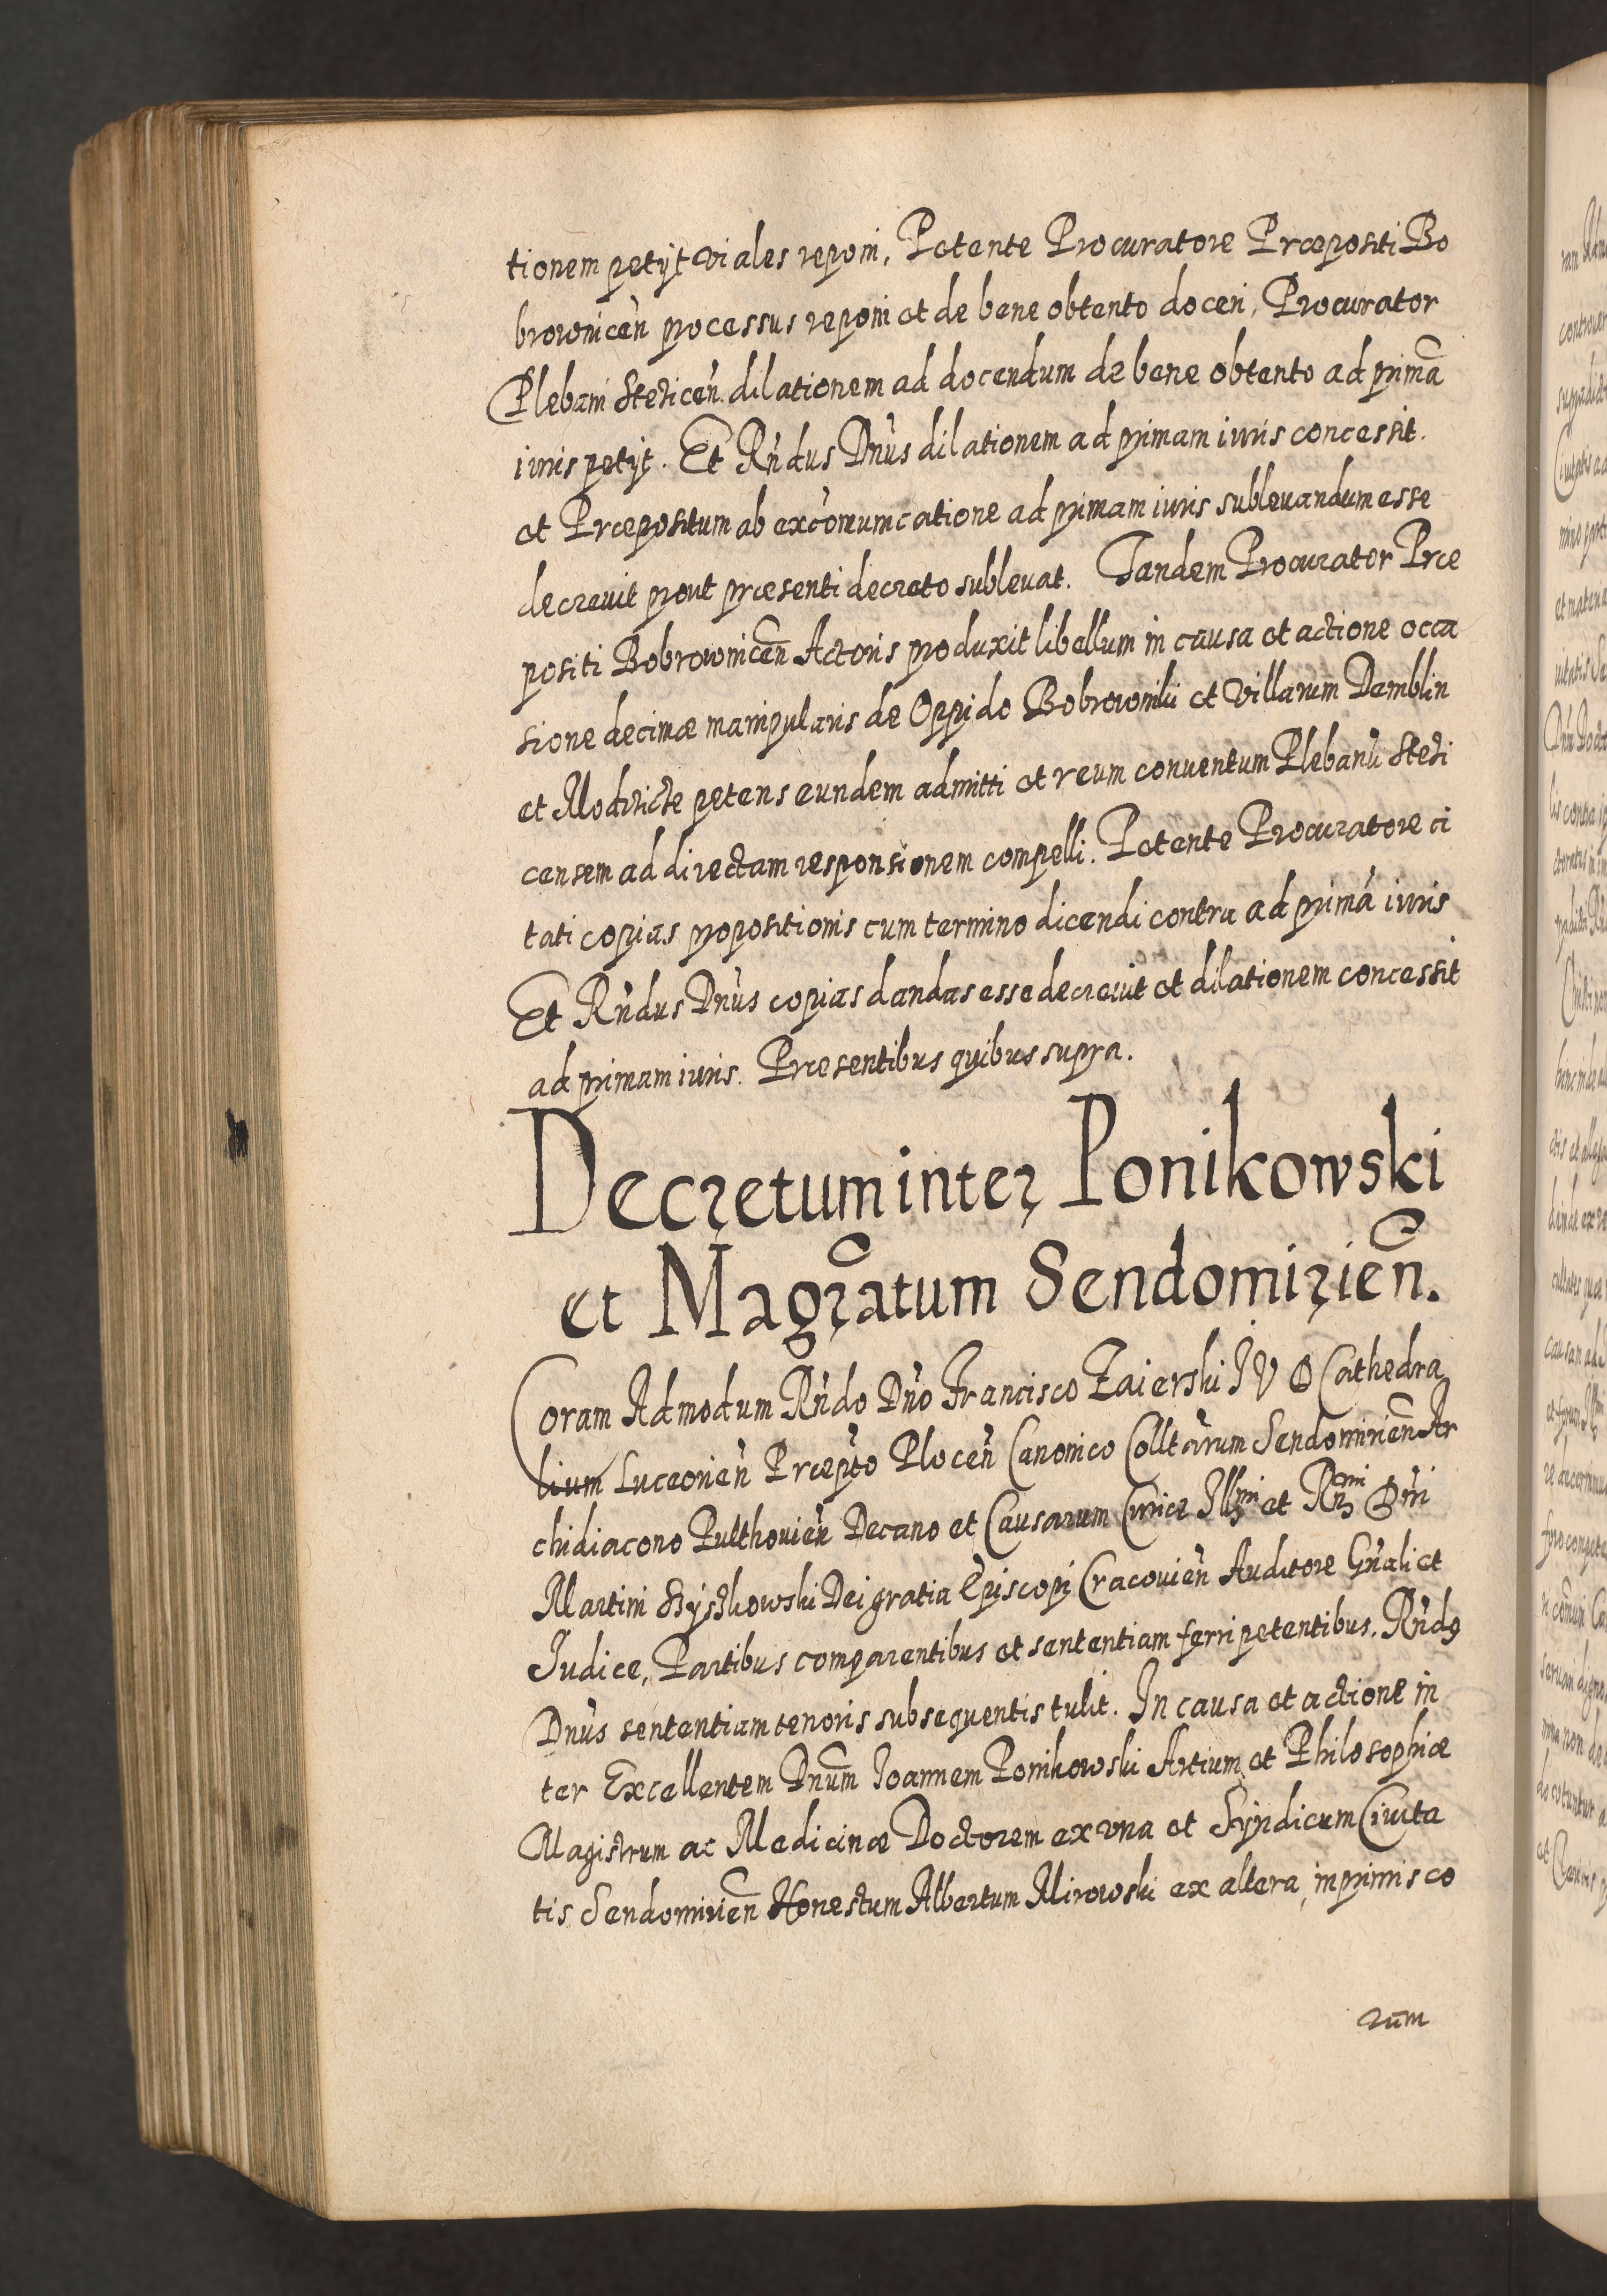 tionem petijt viales reponi, Petente Procuratore Præpositi Bo
browniceń processus reponi et de bene obtento doceri, Procurator
Plebani Steziceń dilationem ad docendum de bene obtento ad primā
iuris petijt. Et Rńdus Dnus dilationem ad primam iuris concessit.
et Præpositum ab excōmunicatione ad primam iuris subleuandum esse
decreuit prout præsenti decreto subleuat. Tandem Procurator Præ
positi Bobrownicen̄ Actoris produxit libellum in causa et actione occa
sione decimæ manipularis de Oppido Bobrowniki et villarum Demblin
et Modrzicze petens eundem admitti et reum conuentum Plebanū Stezi
censem ad directam responsionem compelli. Petente Procuratore ci
tati copias propositionis cum termino dicendi contra ad primā iuris
Et Rńdus Dnus copias dandas esse decreuit et dilationem concessit
ad primam iuris. Præsentibus quibus supra.
Decretum inter Ponikowski
et Magr̄atum Sendomirień.
Coram Admodum Rńdo Dńo Francisco Zaierski I V D Cathedra
lium Luceorień Præpto Ploceń Canonico Colltarum Sendomirien̄ Ar
chidiacono Pulthouień Decano et Causarum Curiæ Illmi et Rmi Dńi
Martini Szyszkowski Dei gratia Episcopi Cracouień Auditore Gńali et
Iudice, Partibus comparentibus et sententiam ferri petentibus. Rńdus
Dnus sententiam tenoris subsequentis tulit. In causa et actione in
ter Excellentem Dnum Ioannem Ponikowski Artium et Philosophiæ
Magistrum ac Medicinæ Doctorem ex vna et Syndicum Ciuita
tis Sendomirien̄ Honestum Albertum Mirowski ex altera, inprimis co
rum